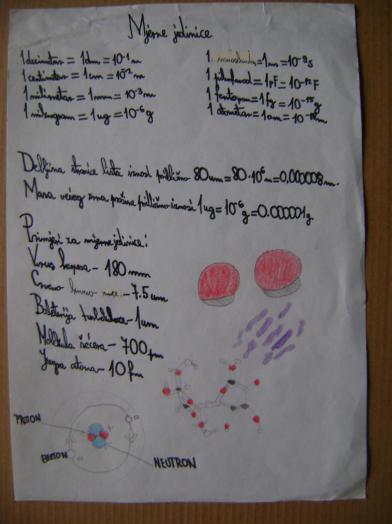 Mjerne jedinice
1 decimetar = 1dm = 10⁻¹ m
1 centimetar = 1cm = 10⁻² m
1 milimetar = 1mm = 10⁻³ m
1 mikrogram = 1ug = 10⁻⁶ g
1 nanosekunda = 1ns = 10⁻⁹ s
1 pikofarad = 1pF = 10⁻¹² F
1 femtogram = 1fg = 10⁻¹⁵ g
1 atometar = 1am = 10⁻¹⁸ m
Debljina stanice lista iznosi približno 80um = 80·10⁶ m = 0,000008m.
Masa većeg zrna prašine približno iznosi 1ug = 10⁶ g = 0.000001g
Primjeri za mjerne jedinice:
Virus - 180mm
Crveno krvno - 7.5um
Bakterija - 1um
Molekula šećera - 700pm
Jezgra atoma - 10fm
PROTON
NEUTRON